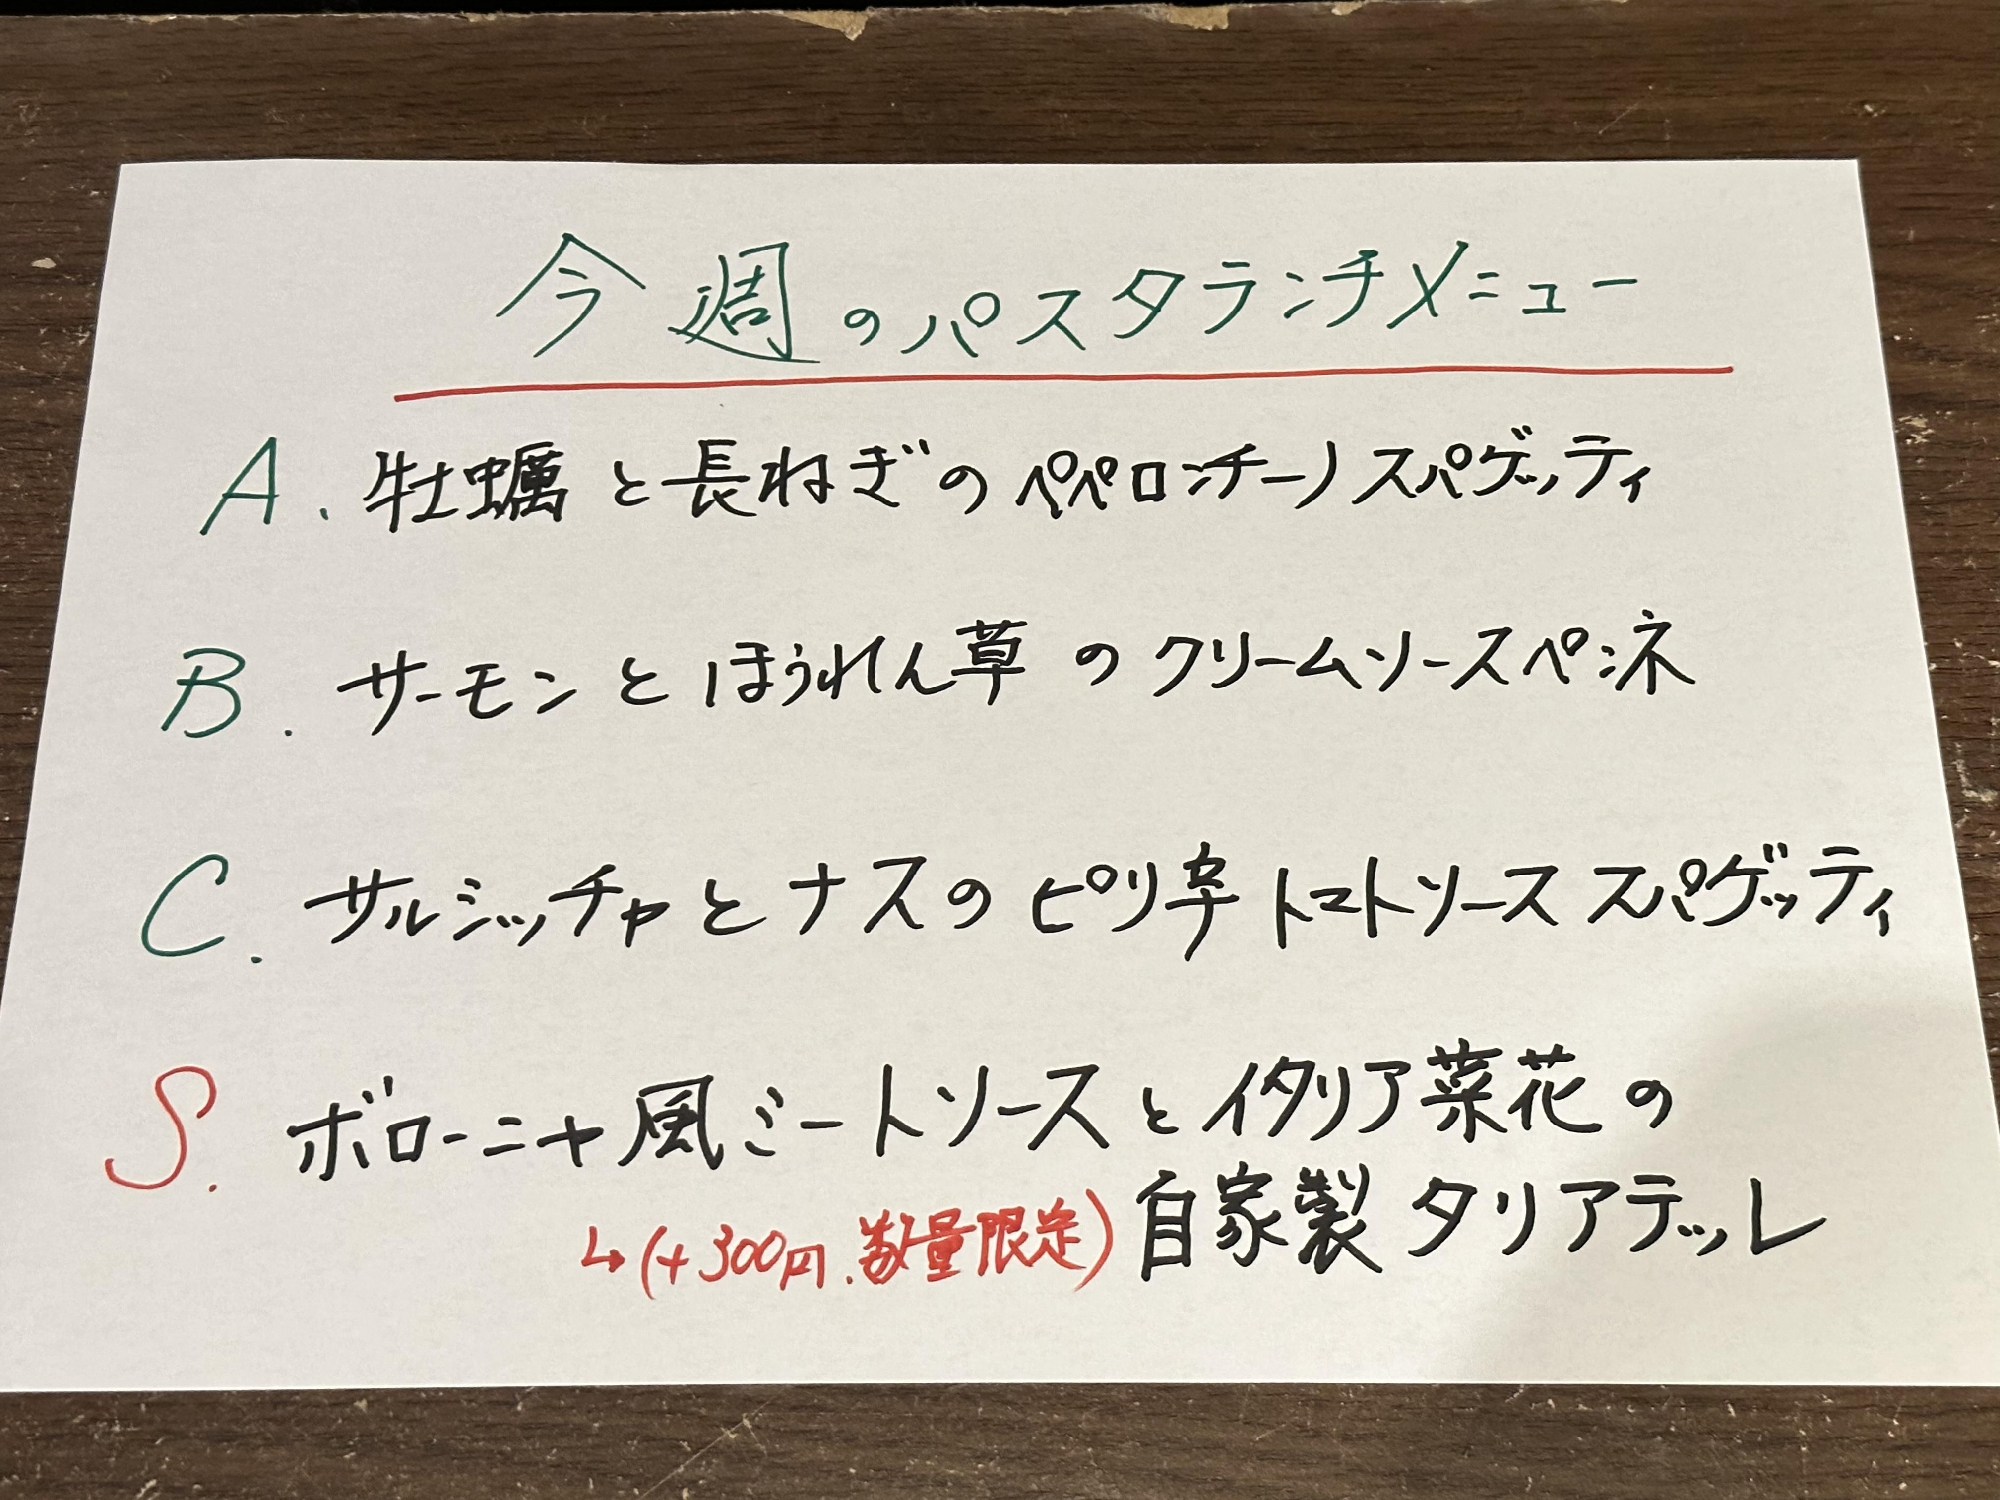 今週のパスタランチメニュー
A. 牡蠣と長ねぎのペペロンチーノスパゲッティ
B. サーモンとほうれん草のクリームソースペンネ
C. サルシッチャとナスのピリ辛トマトソーススパゲッティ
S. ボローニャ風ミートソースとイタリア菜花の
自家製タリアテッレ
↳(+300円.数量限定)